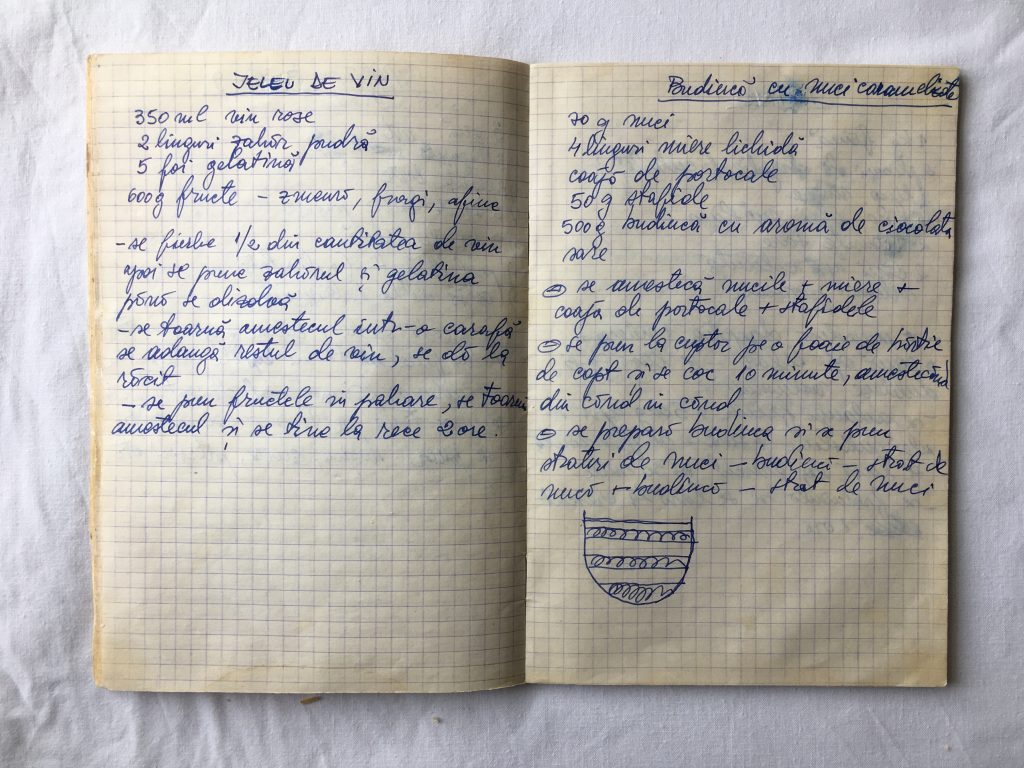 JELEU DE VIN
350 ml vin rose
2 linguri zahăr pudră
5 foi gelatină
600g fructe - zmeură, fragi, afine
- se fierbe 1/2 din cantitatea de vin
apoi se pune zahărul și gelatina
până se dizolvă
- se toarnă amestecul într-o carafă
se adaugă restul de vin, se dă la
răcit
- se pun fructele in pahare, se toarnă
amestecul și se ține la rece 2 ore.
Budincă cu nuci caramelizate
70 g nuci
4 linguri miere lichidă
coajă de portocale
50 g stafide
500 g budincă cu aromă de ciocolată
sare
- se amestecă nucile + miere +
coaja de portocale + stafidele
- se pun la cuptor pe o foaie de hârtie
de copt si se coc 10 minute, amestecând
din când in când
- se prepară budinca si se pun
straturi de nuci - budincă - strat de
nucă + budincă - strat de nuci